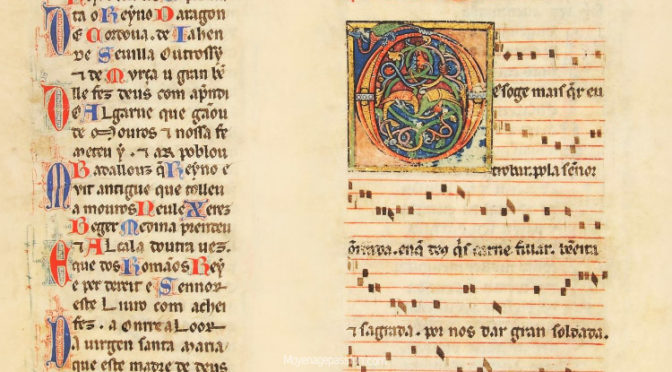 ta o Reyno Daragon
De Cordoua. de Iahen
De Seuilla Outrossy
⁊ de Murça u gran bẽ
lle fez deus com apndi
De ALgarue que gãou
de Mouros ⁊ nossa fe
meteu y. ⁊ ar poblou
Badallouz q̃ Reyno e
Muit antigue que tolleu
a mouros Neule Xerez
Beger Medina prendeu
E ALcala doutra uez.
que dos Romãos Rey
e per dereit e Sennor
este Liuro com achei
fez. a Onrr e a Loor
Da uirgen santa maria
que este madre de deus
Desoge mais q̃r eu
trobar. pola señor
õrrada. enq̃ d̃s q̃s carne fillar. bẽeita
⁊ sagrada. por nos dar gran soldada.